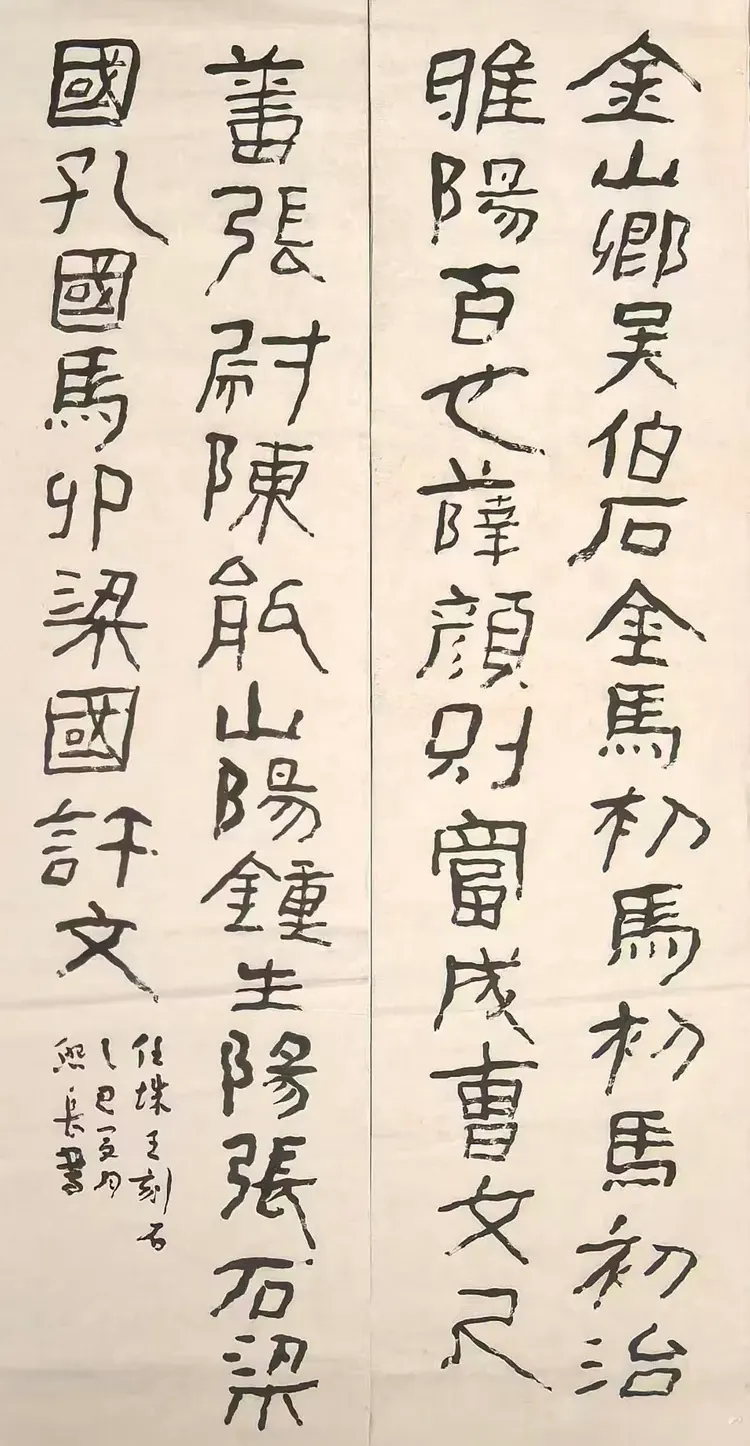 金山鄉吳伯石金馬朷馬朷馬初治
睢陽百也薛顏則富成曹文尺
蕃張尉陳能山陽鍾生陽張石梁
國孔國馬卯梁國許文
任城王刻石
乙巳夏月
熙長書